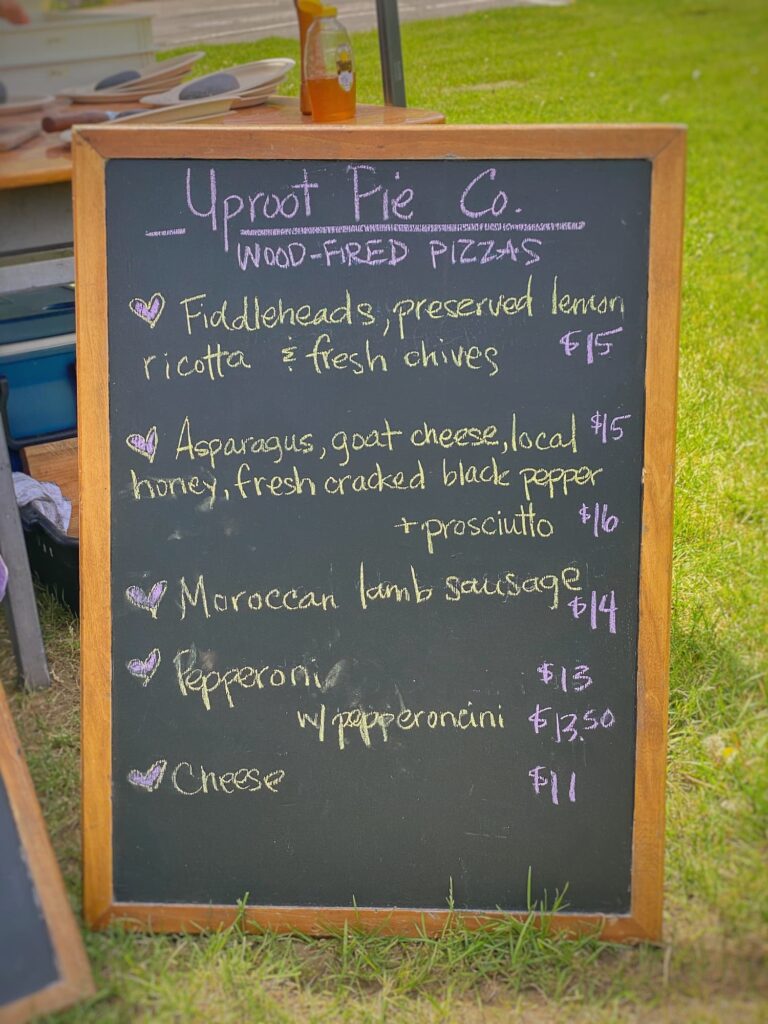 Uproot Pie Co.
WOOD-FIRED PIZZAS
Fiddleheads, preserved lemon
ricotta & fresh chives $15
Asparagus, goat cheese, local $15
honey, fresh cracked black pepper
+ prosciutto $16
Moroccan lamb sausage $14
Pepperoni $13
w/ pepperoncini $13.50
Cheese $11